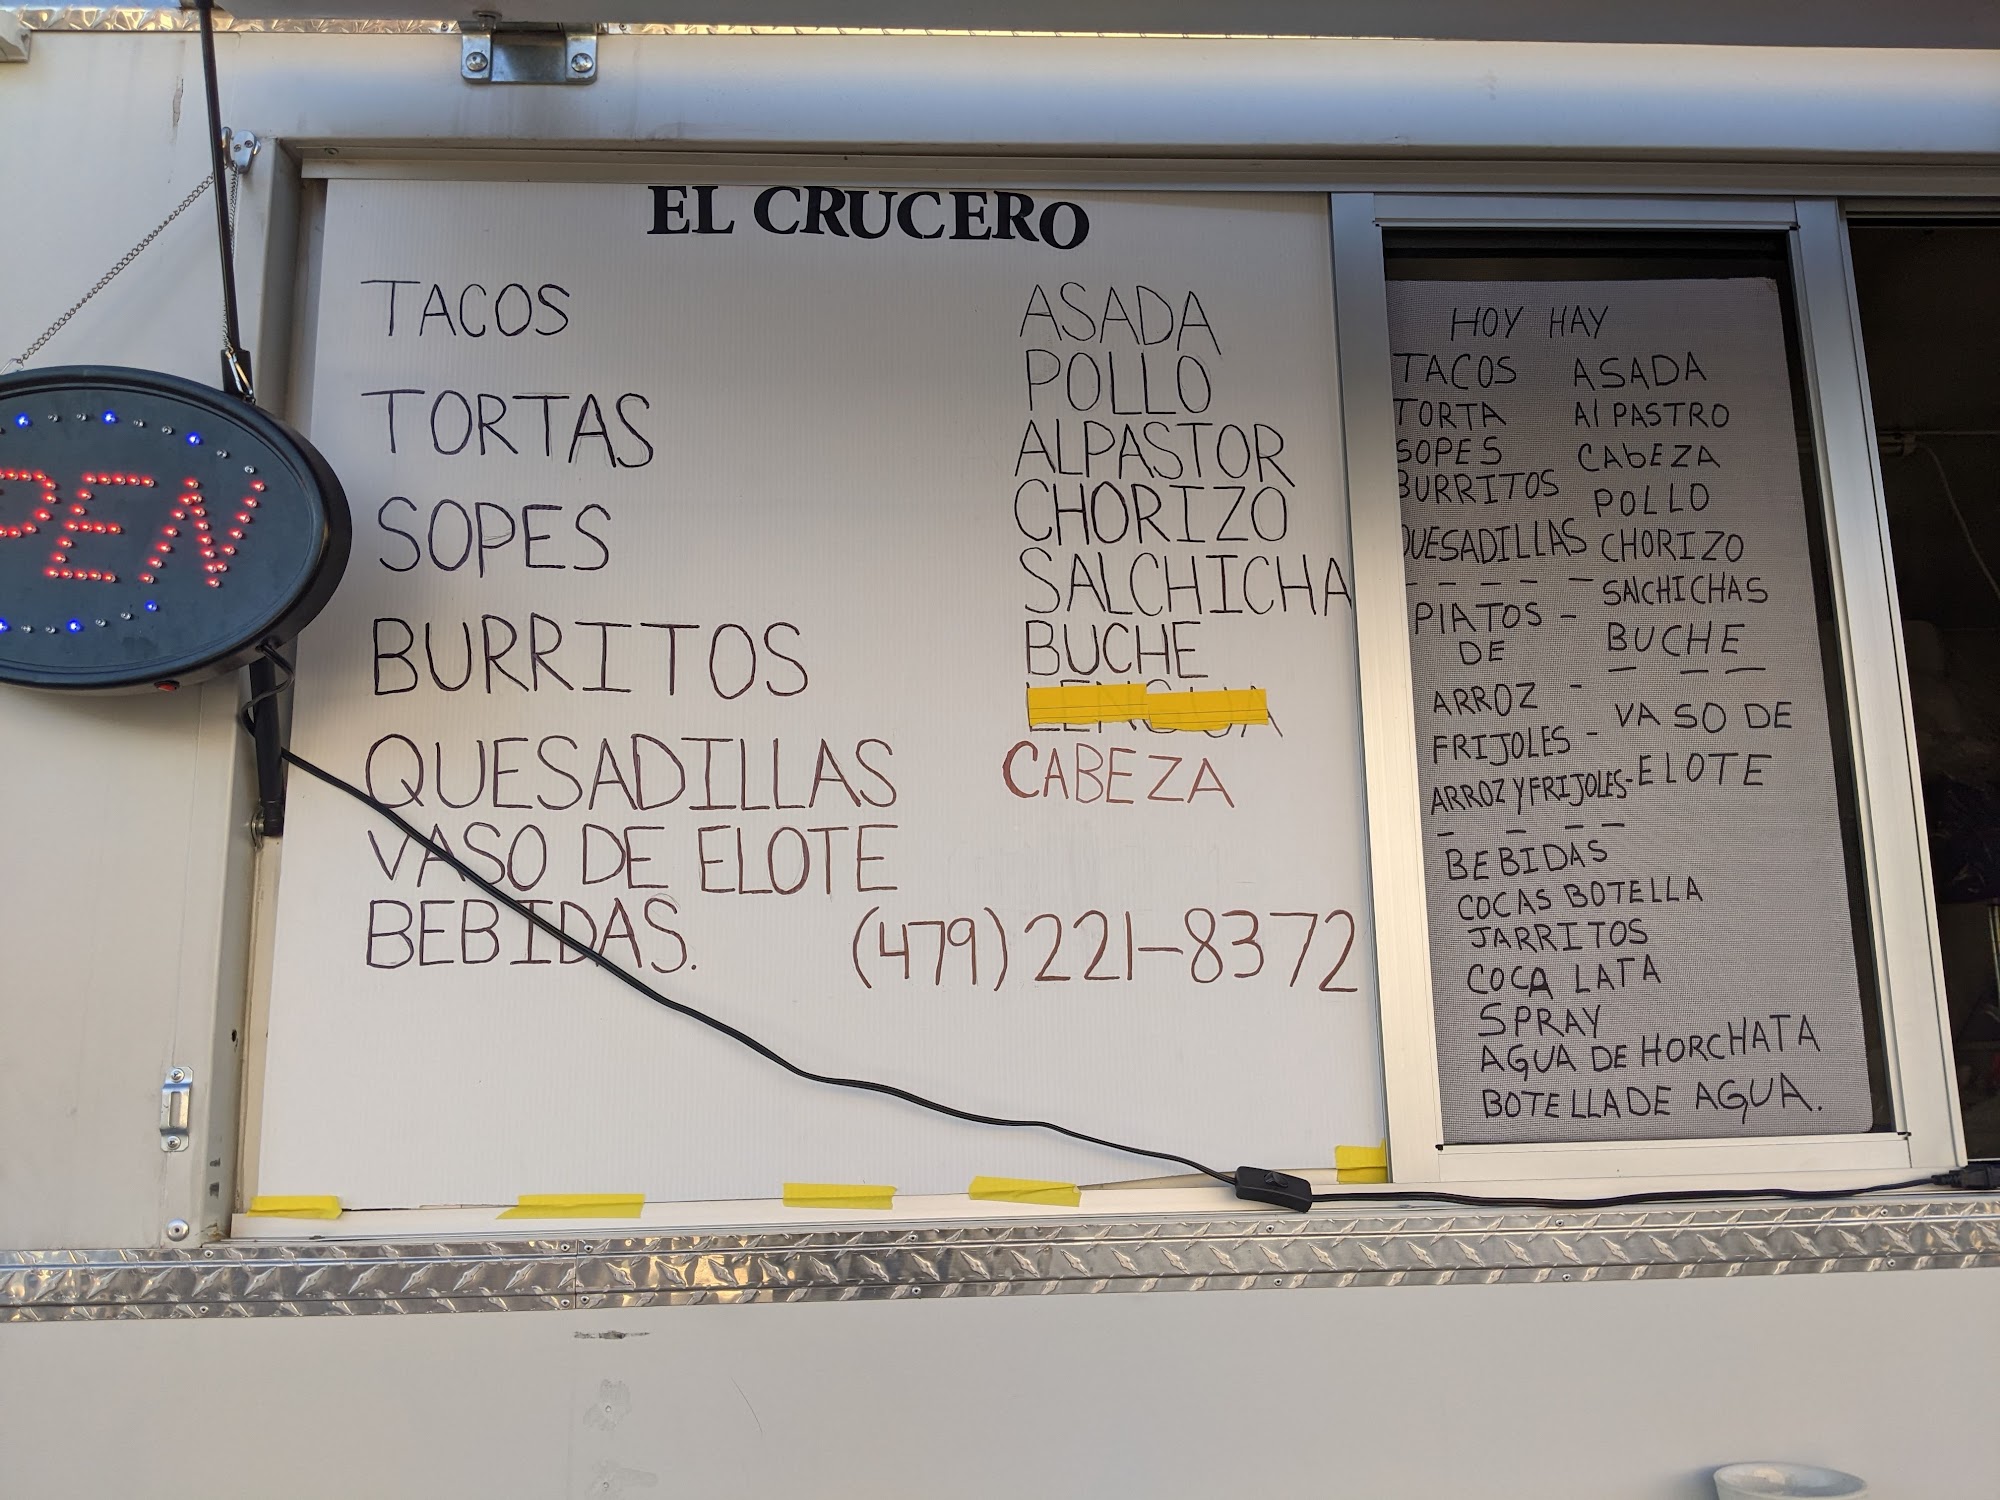 EL CRUCERO
TACOS
TORTAS
SOPES
BURRITOS
QUESADILLAS
VASO DE ELOTE
BEBIDAS.
ASADA
POLLO
ALPASTOR
CHORIZO
SALCHICHA
BUCHE
LENGUA
CABEZA
(479) 221-8372
PEN
HOY HAY
TACOS ASADA
TORTA Al PASTRO
SOPES CAbEZA
BURRITOS POLLO
QUESADILLAS CHORIZO
- - - - - SAlCHICHAS
PlATOS - BUCHE
DE - - -
ARROZ - VASO DE
FRIJOLES - ELOTE
ARROZ Y FRIJOLES-
- - - -
BEBIDAS
COCAS BOTELLA
JARRITOS
COCA LATA
SPRAY
AGUA DE HORCHATA
BOTELLA DE AGUA.